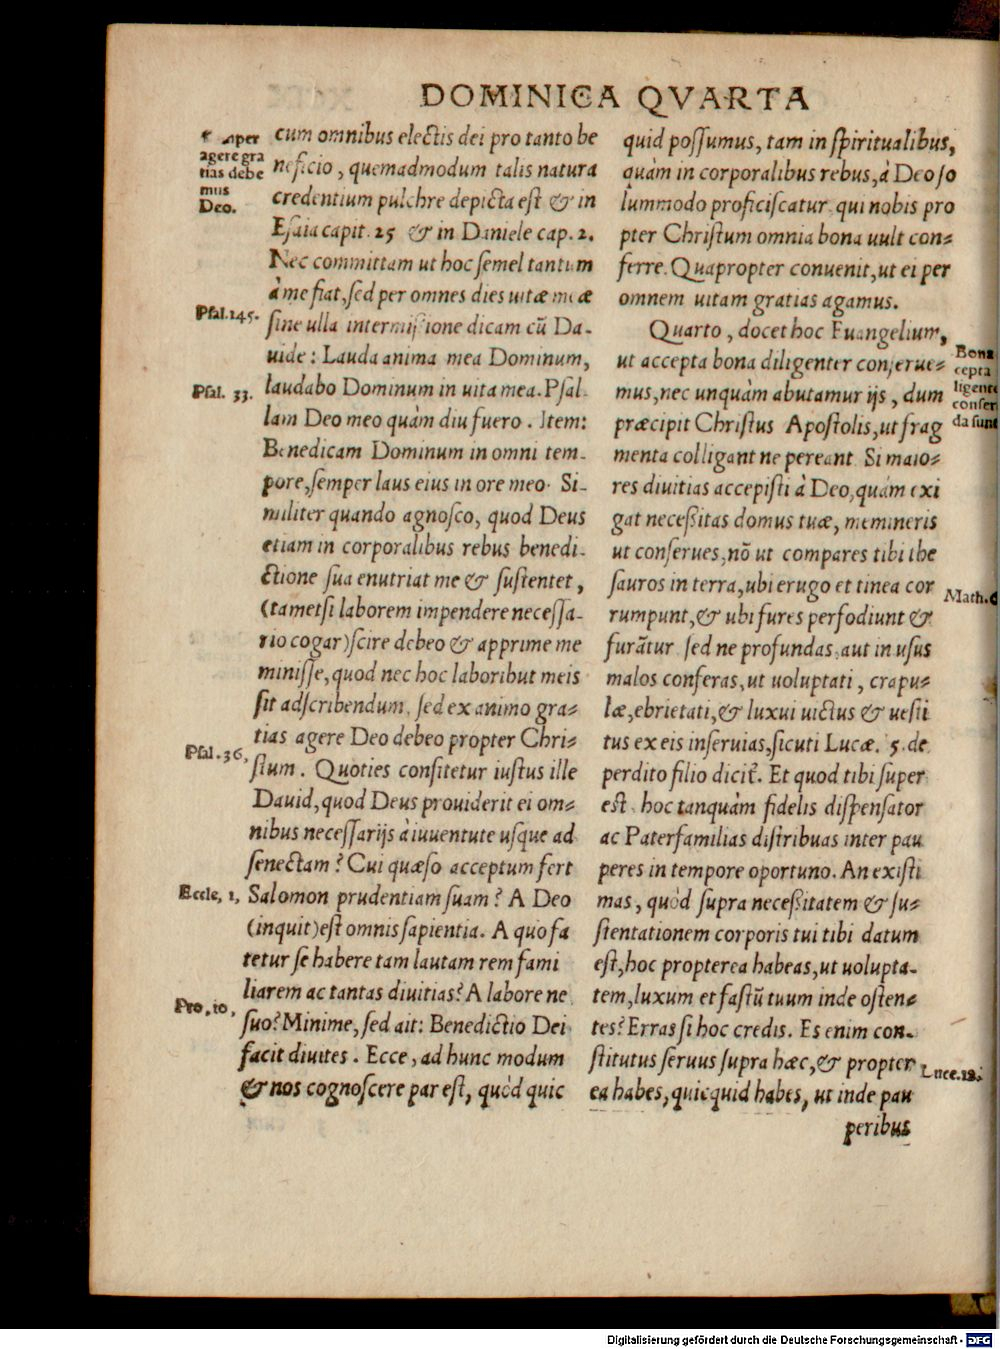 DOMINICA QVARTA
agere gra
tias debe
mus
Deo.
Psal.145.
Psal. 33.
Psal.36,
Eccle, 1,
Pro,10,
cum omnibus electis dei pro tanto be
neficio, quemadmodum talis natura
credentium pulchre depicta est & in
Esaia capit. 25 & in Daniele cap. 2.
Nec committam ut hoc semel tantum
à me fiat, sed per omnes dies uitæ meæ
sine ulla intermissione dicam cũ Da-
uide: Lauda anima mea Dominum,
laudabo Dominum in uita mea. Psal-
lam Deo meo quàm diu fuero. Item:
Benedicam Dominum in omni tem-
pore, semper laus eius in ore meo. Si-
militer quando agnosco, quod Deus
etiam in corporalibus rebus benedi-
ctione sua enutriat me & sustentet,
(tametsi laborem impendere necessa-
rio cogar) scire debeo & apprime me
minisse, quod nec hoc laboribut meis
sit adscribendum, sed ex animo gra=
tias agere Deo debeo propter Chri=
stum. Quoties confitetur iustus ille
Dauid, quod Deus prouiderit ei om=
nibus necessarijs à iuuentute usque ad
senectam? Cui quæso acceptum fert
Salomon prudentiam suam? A Deo
(inquit) est omnis sapientia. A quo fa
tetur se habere tam lautam rem fami
liarem ac tantas diuitias? A labore ne
suo? Minime, sed ait: Benedictio Dei
facit diuites. Ecce, ad hunc modum
& nos cognoscere par est, quòd quic
quid possumus, tam in spiritualibus,
quàm in corporalibus rebus, à Deo so
lummodo proficiscatur qui nobis pro
pter Christum omnia bona uult con=
ferre. Quapropter conuenit, ut ei per
omnem uitam gratias agamus.
Quarto, docet hoc Euangelium,
ut accepta bona diligenter conserue=
mus, nec unquàm abutamur ijs, dum
præcipit Christus Apostolis, ut frag
menta colligant ne pereant. Si maio=
res diuitias accepisti à Deo, quàm exi
gat necessitas domus tuæ, memineris
ut conserues, nõ ut compares tibi the
sauros in terra, ubi erugo et tinea cor
rumpunt, & ubi fures perfodiunt &
furãtur sed ne profundas, aut in usus
malos conferas, ut uoluptati, crapu=
læ, ebrietati, & luxui uictus & uesti
tus ex eis inseruias, sicuti Lucæ. 5. de
perdito filio dicit̃. Et quod tibi super
est, hoc tanquàm fidelis dispensator
ac Paterfamilias distribuas inter pau
peres in tempore oportuno. An existi
mas, quòd supra necessitatem & su=
stentationem corporis tui tibi datum
est, hoc propterea habeas, ut uolupta-
tem, luxum et fastũ tuum inde osten=
tes? Erras si hoc credis. Es enim con-
stitutus seruus supra hæc, & propter
ea habes, quicquid habes, ut inde pau
peribus
Bona
cepta
ligente
conser
da sunt
Math.
Luce.12.
Digitalisierung gefördert durch die Deutsche Forschungsgemeinschaft - DFG